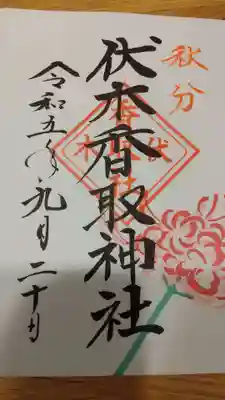 秋分
伏木香取神社
令和五年九月二十日